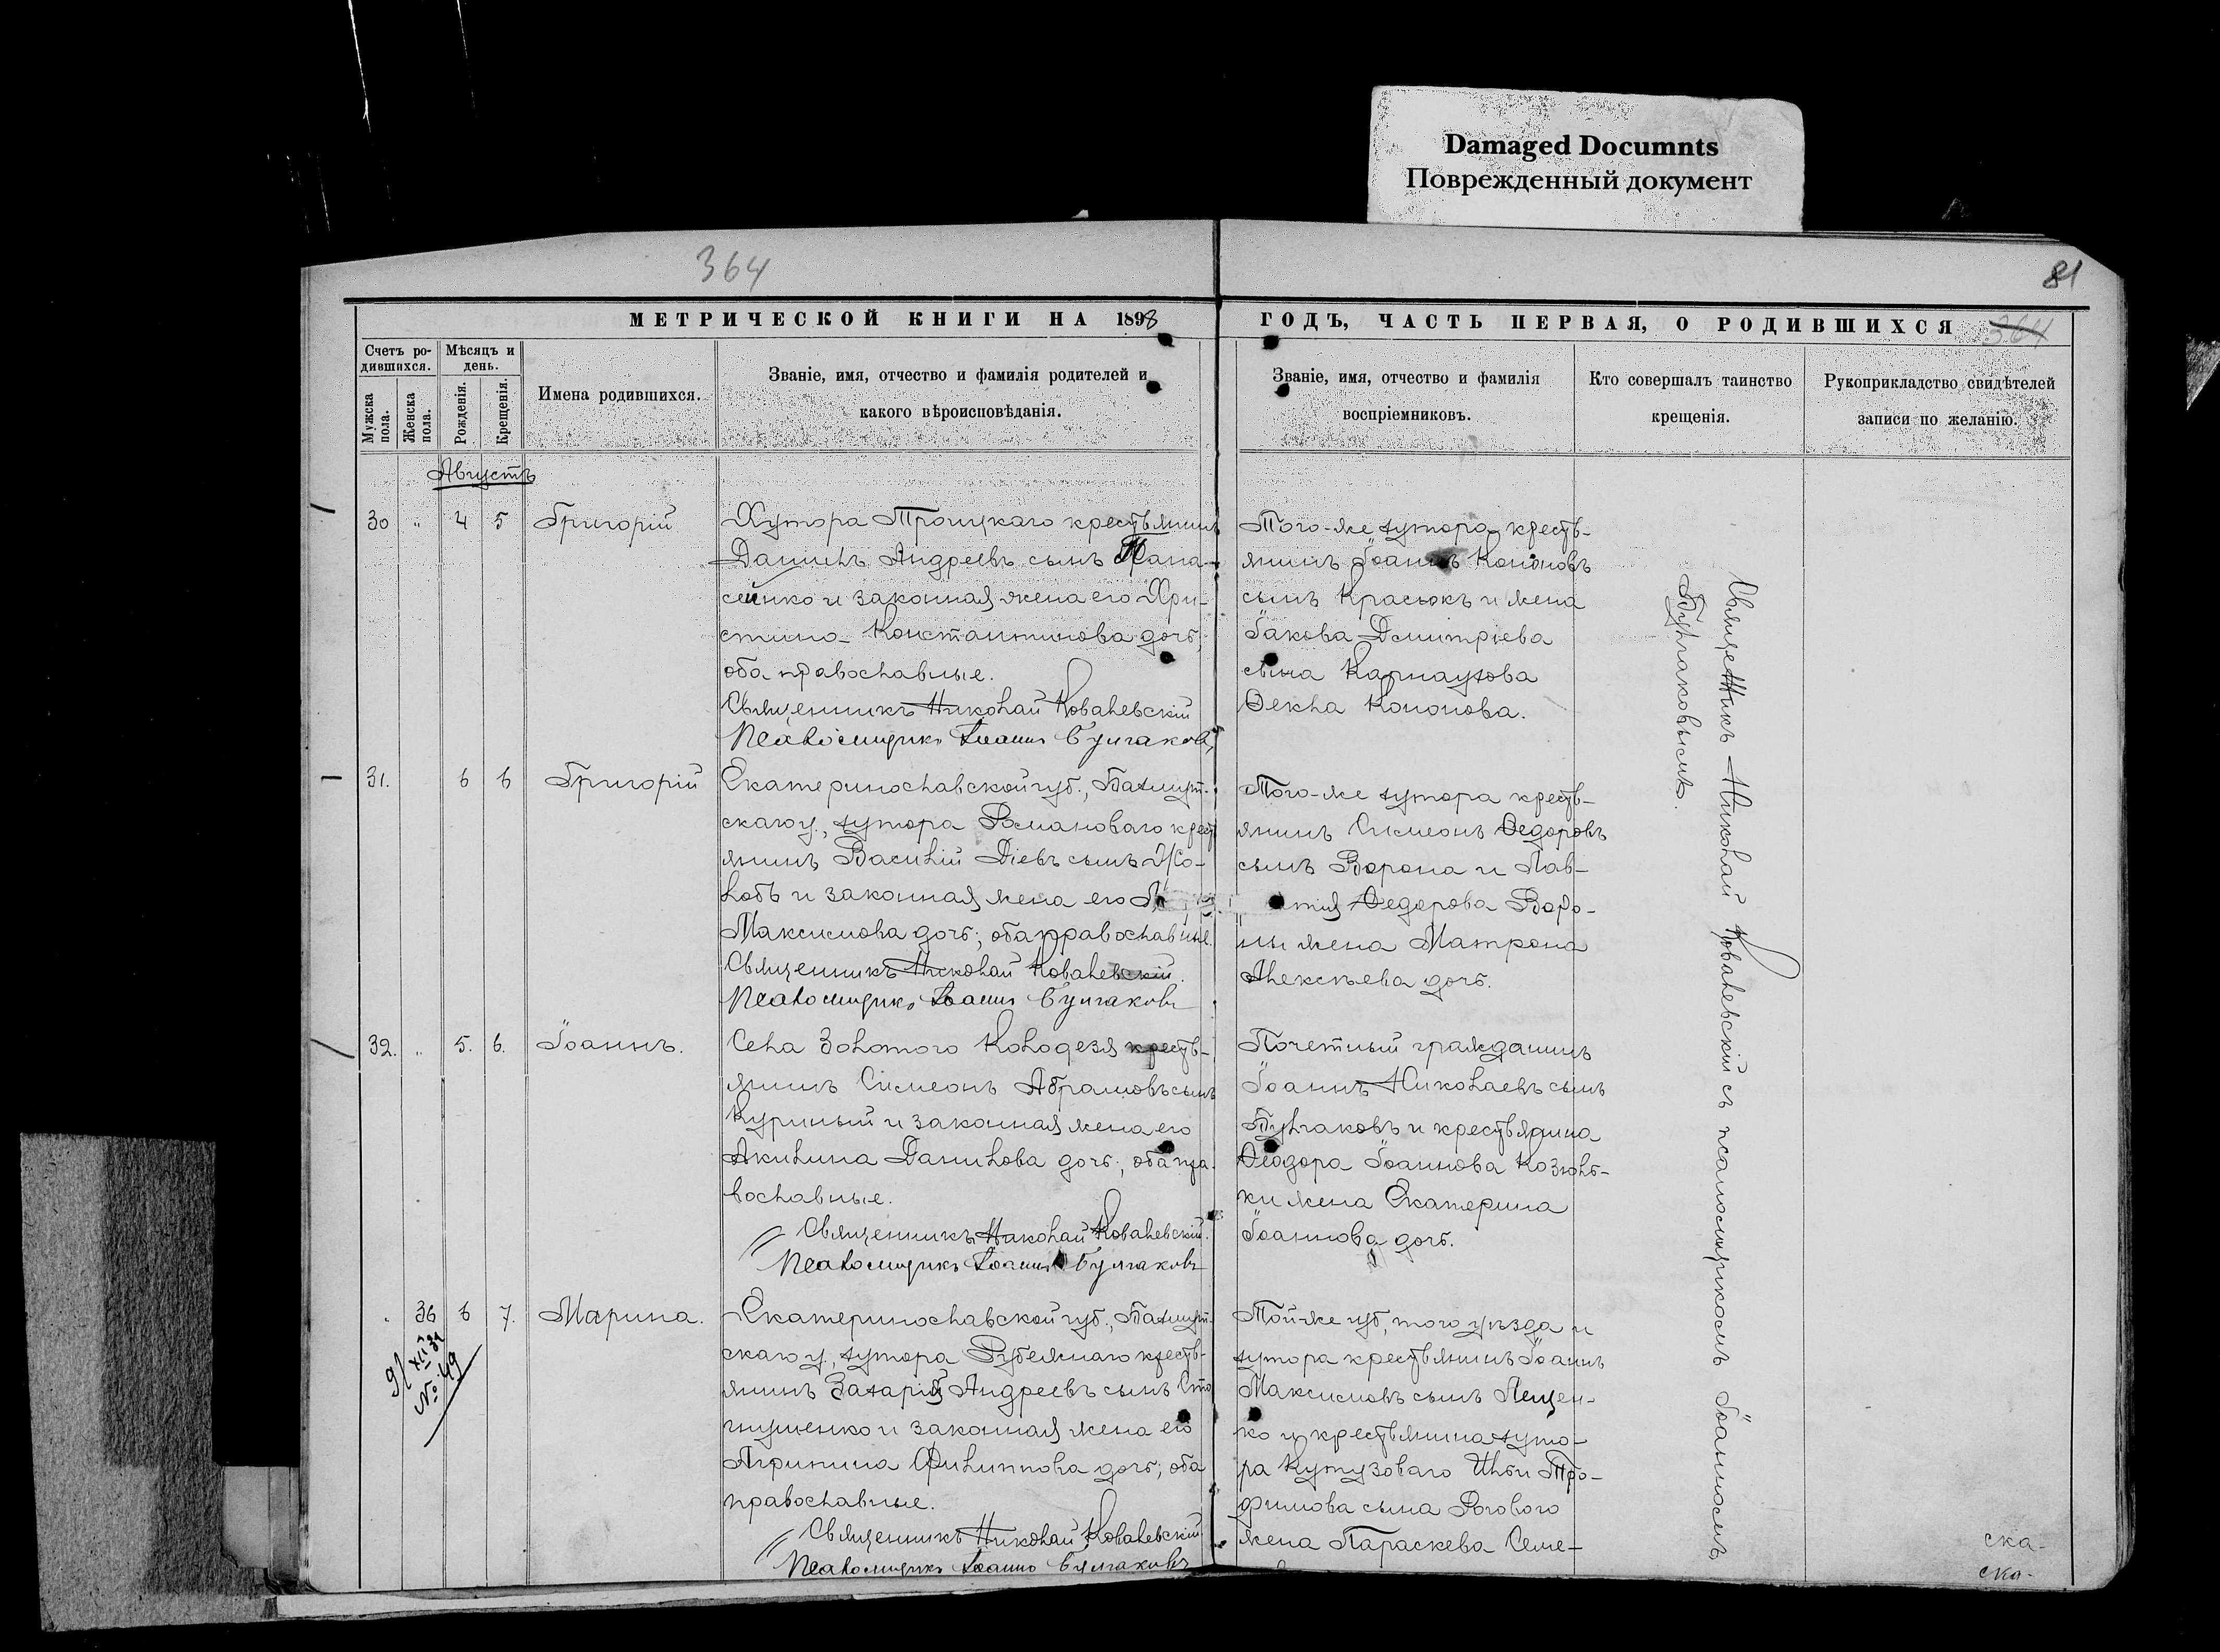 Damaged Documnts
Поврежденный документ
364
81
МЕТРИЧЕСКОЙ КНИГИ НА 1898
ГОДЪ, ЧАСТЬ ПЕРВАЯ, О РОДИВШИХСЯ
364
Счетъ ро-
дившихся.
Мужска
пола.
Женска
пола.
Мѣсяцъ и
день.
Рожденія.
Крещенія.
Имена родившихся.
Званіе, имя, отчество и фамилія родителей и
какого вѣроисповѣданія.
Званіе, имя, отчество и фамилія
воспріемниковъ.
Кто совершалъ таинство
крещенія.
Рукоприкладство свидѣтелей
записи по желанію.
Августъ
30 " 4 5 Григорій
Хутора Троицкаго крестьянинъ
Даниилъ Андреевъ сынъ Пана-
сенко и законная жена его Хри-
стина Константинова дочь;
оба православные.
Священникъ Николай Ковалевскій
Псаломщикъ Іоаннъ Булгаковъ
Того-же хутора кресть-
янинъ Іоаннъ Кононовъ
сынъ Красюкъ и жена
Іакова Димитріева
сына Карнаухова
Ѳекла Кононова.
31. 6 6 Григорій
Екатеринославской губ., Бахмут-
скаго у., хутора Романоваго крест
янинъ Василій Діевъ сынъ Жо-
лобъ и законная жена его
Максимова дочь; оба православные.
Священникъ Николай Ковалевскій.
Псаломщикъ Іоаннъ Булгаковъ
Того-же хутора кресть-
янинъ Симеонъ Ѳедоровъ
сынъ Ворона и Лав-
Ѳедорова Воро-
ны жена Матрона
Алексѣева дочь.
32. " 5. 6. Іоаннъ.
Села Золотого Колодезя кресть-
янинъ Симеонъ Абрамовъ сынъ
Куриный и законная жена его
Акилина Данилова дочь; оба пра-
вославные.
Священникъ Николай Ковалевскій.
Псаломщикъ Іоаннъ Булгаковъ
Почетный гражданинъ
Іоаннъ Николаевъ сынъ
Булгаковъ и крестьянина
Ѳеодора Іоаннова Козюль-
ки жена Екатерина
Іоаннова дочь.
" 36 6 7. Марина.
9/XII 32
№ 49
Екатеринославской губ., Бахмут-
скаго у., хутора Рубежнаго кресть-
янинъ Захарій Андреевъ сынъ Сто
гнушенко и законная жена его
Агрипина Филиппова дочь; оба
православные.
Священникъ Николай Ковалевскій
Псаломщикъ Іоаннъ Булгаковъ
Той-же губ., того уѣзда и
хутора крестьянинъ Іоаннъ
Максимовъ сынъ Лещен-
ко и крестьянина хуто-
ра Кутузоваго Ильи Тро-
фимова сына Рогового
жена Параскева Семе-
Священникъ Николай Ковалевскій съ псаломщикомъ Іоанномъ
Булгаковымъ.
ска-
ска-